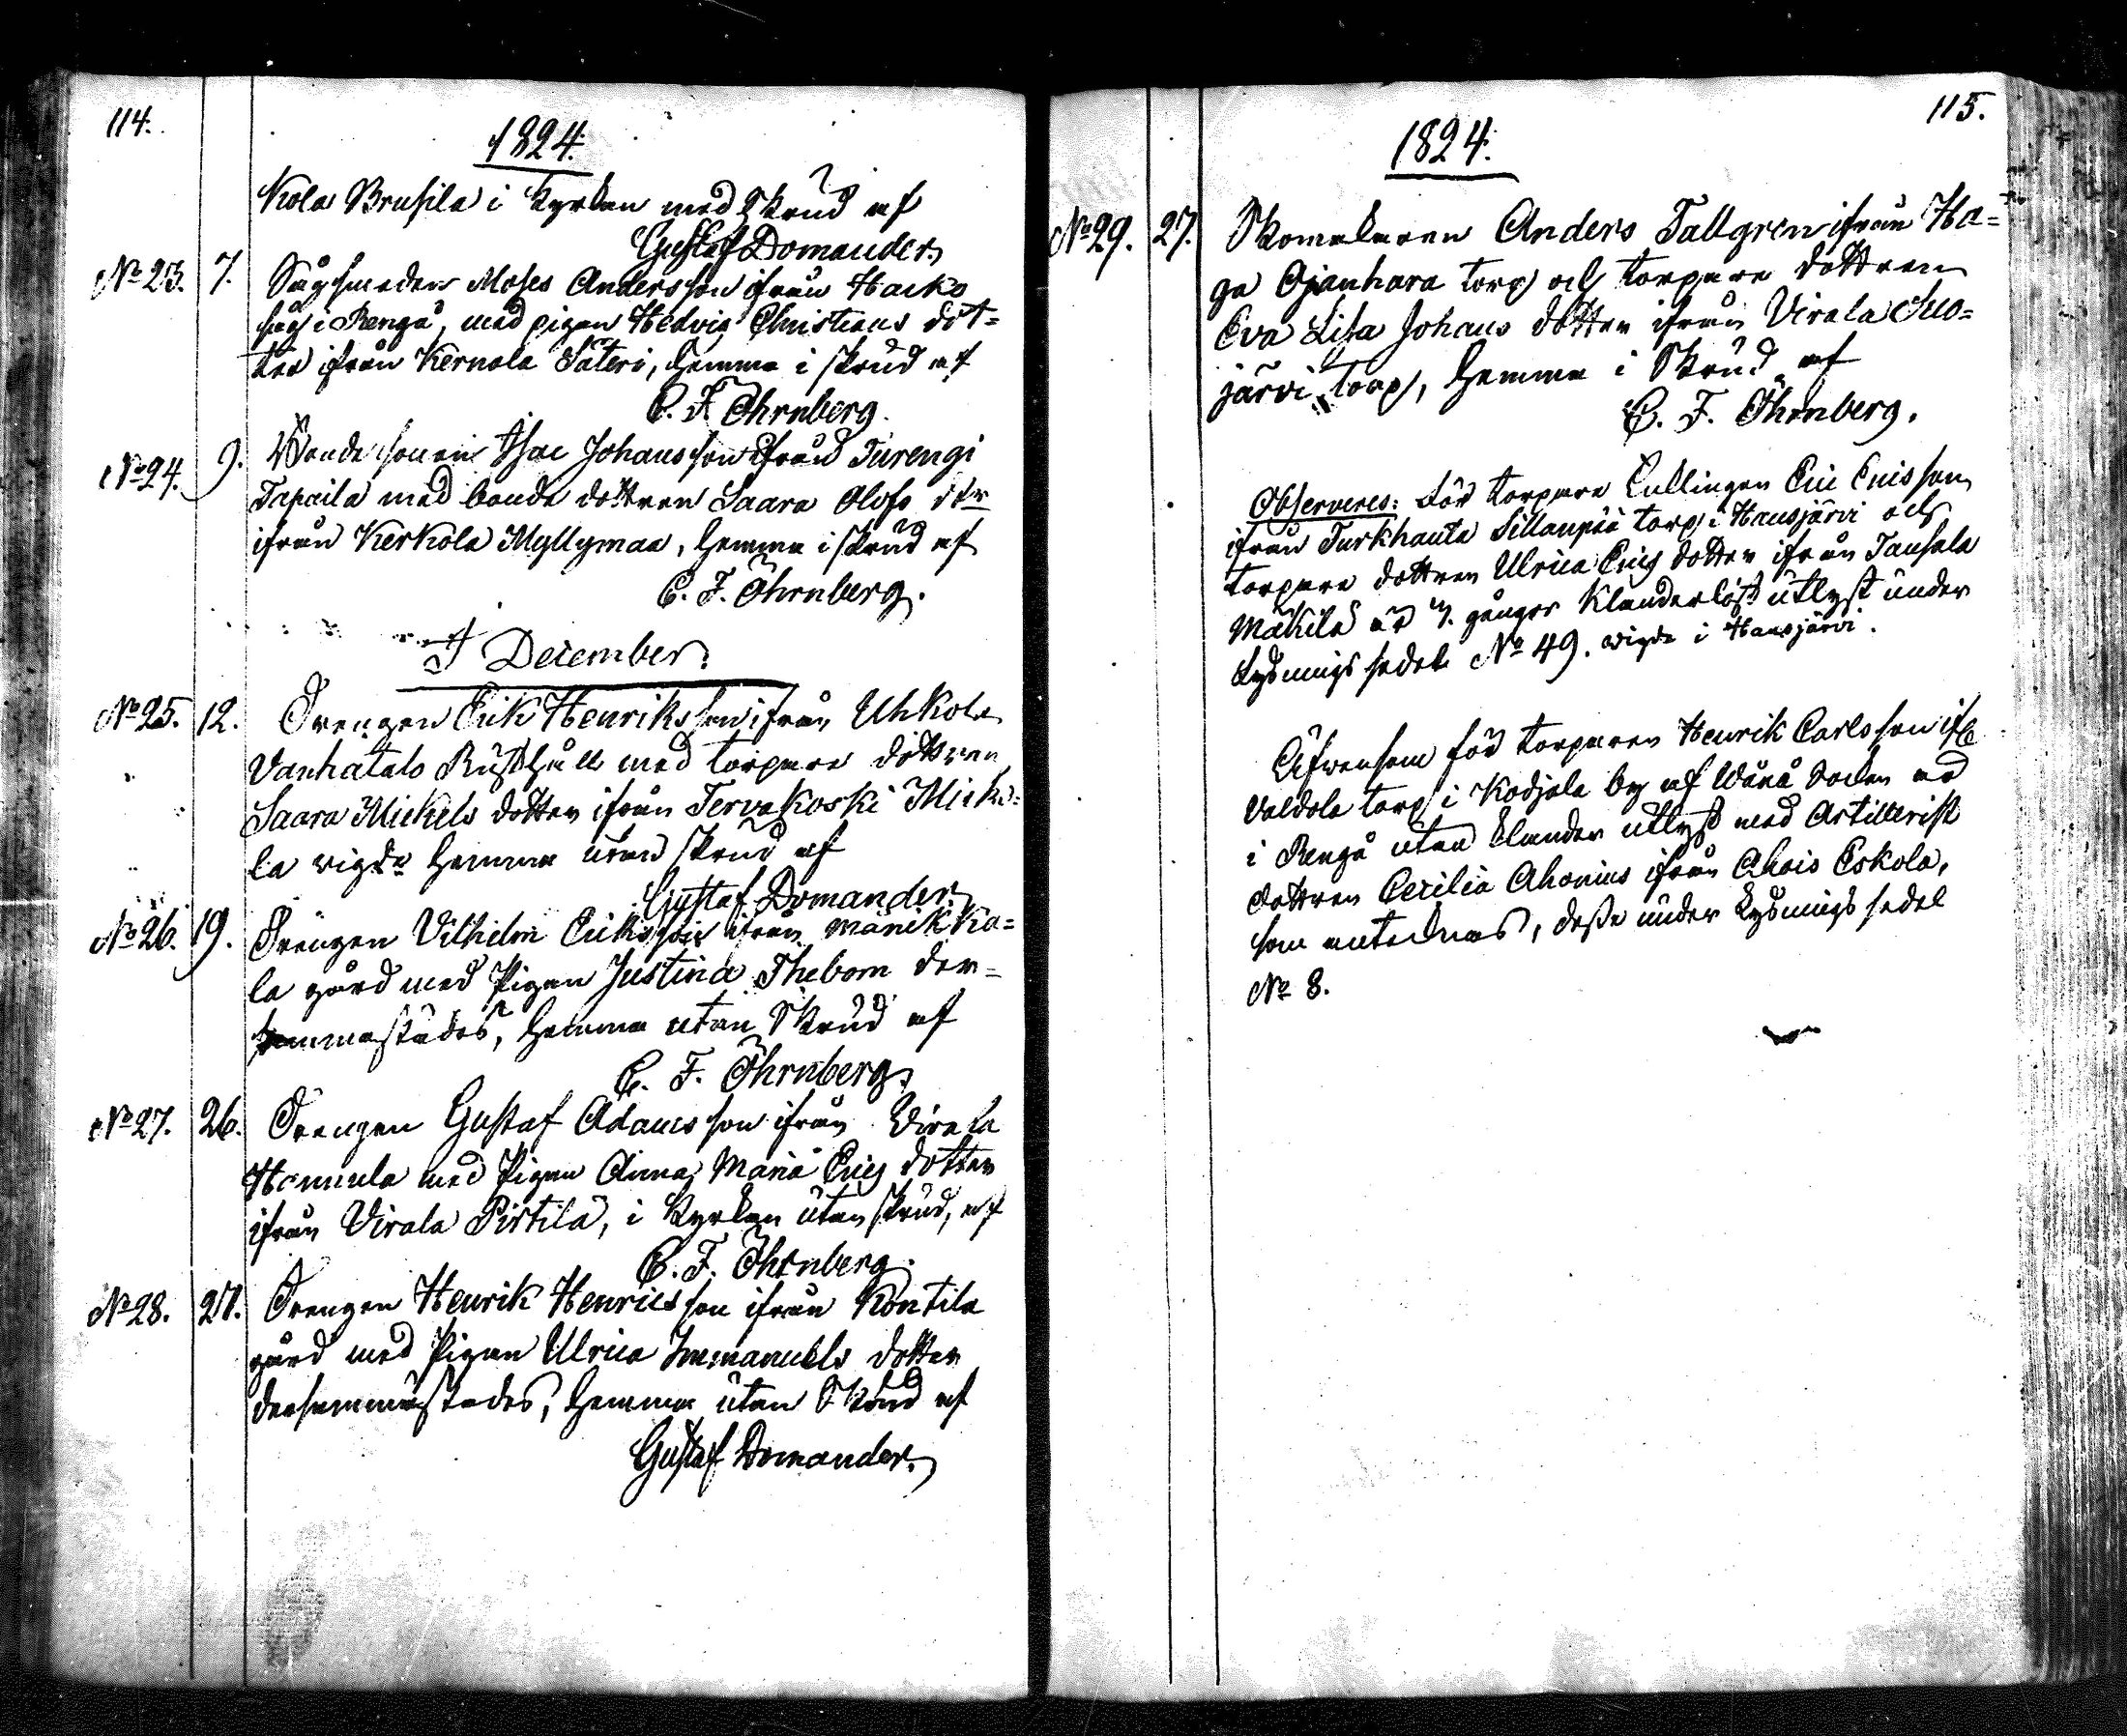 114.
1824.
Kola Brusila i Kyrkan med Skrud af
Gustaf Domander.
No 23. 7. Sågsmeden Moses Andersson ifrån Hacko
såg i Rengå, med pigan Hedvig Christians dot=
ter ifrån Kernala Säteri, hemma i skrud af
C. F. Öhrnberg.
No 24. 9. Bonde sonen Isac Johansson ifrån Turengi
Tapaila med bonde dottren Saara Olofs dtr
ifrån Kerkola Myllymaa, hemma i skrud af
C. F. Öhrnberg.
I December.
No 25. 12. Drengen Erik Henriksson ifrån Uhkola
Vanhatalo Rusthåll med torpare dottren
Saara Mickels dotter ifrån Tervakoski Micko=
la vigde hemma utan skrud af
Gustaf Domander.
No 26. 19. Drengen Vilhelm Eriksson ifrån Mänikkö=
la gård med Pigan Justina Thebom der=
sammastädes, hemma utan Skrud af
C. F. Öhrnberg.
No 27. 26. Drengen Gustaf Adamsson ifrån Virala
Hommola med Pigan Anna Maria Erics dotter
ifrån Virala Pirtilä, i Kyrkan utan skrud, af
C. F. Öhrnberg.
No 28. 27. Drengen Henrik Henricsson ifrån Kontila
gård med Pigan Ulrica Immanuels dotter
dersammastädes, hemma utan Skrud af
Gustaf Domander.
115.
1824.
No 29. 27. Skomakaren Anders Tallgren ifrån Ha=
ga Ojanhara torp och torpare dottren
Eva Lisa Johans dotter ifrån Virala Suo=
järvi torp, hemma i Skrud af
C. F. Öhrnberg.
Observeres: för torpare Eric Ericsson
ifrån Turkhauta Sillanpää torp i Hausjärvi och
torpare dottren Ulrica Erics dotter ifrån Tausala
Mäkilä är 3. gånger klanderlöst utlyst under
Lysnings sedel No 49. vigde i Hausjärvi.
Äfvensom för torparen Henrik Carlsson
Valdola torp i Kodjala by af Wånå Socken
i Rengå utan klander utlyst med Artillerist
dottren Cecilia Ahonius ifrån Ahois Eskola,
som antecknas, desse under Lysnings sedel
No 8.